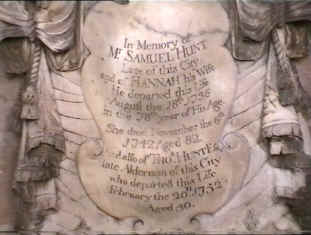 In Memory of
Mr. SAMUEL HUNT
late of this City
and of HANNAH his Wife
He departed this Life
August the 18th 1736
in the 78th year of His Age
She died November the 6th
1742 Aged 82
Also of THOs. HUNTER
late Alderman of this City
who departed this Life
February the 20th 1752
Aged 30.